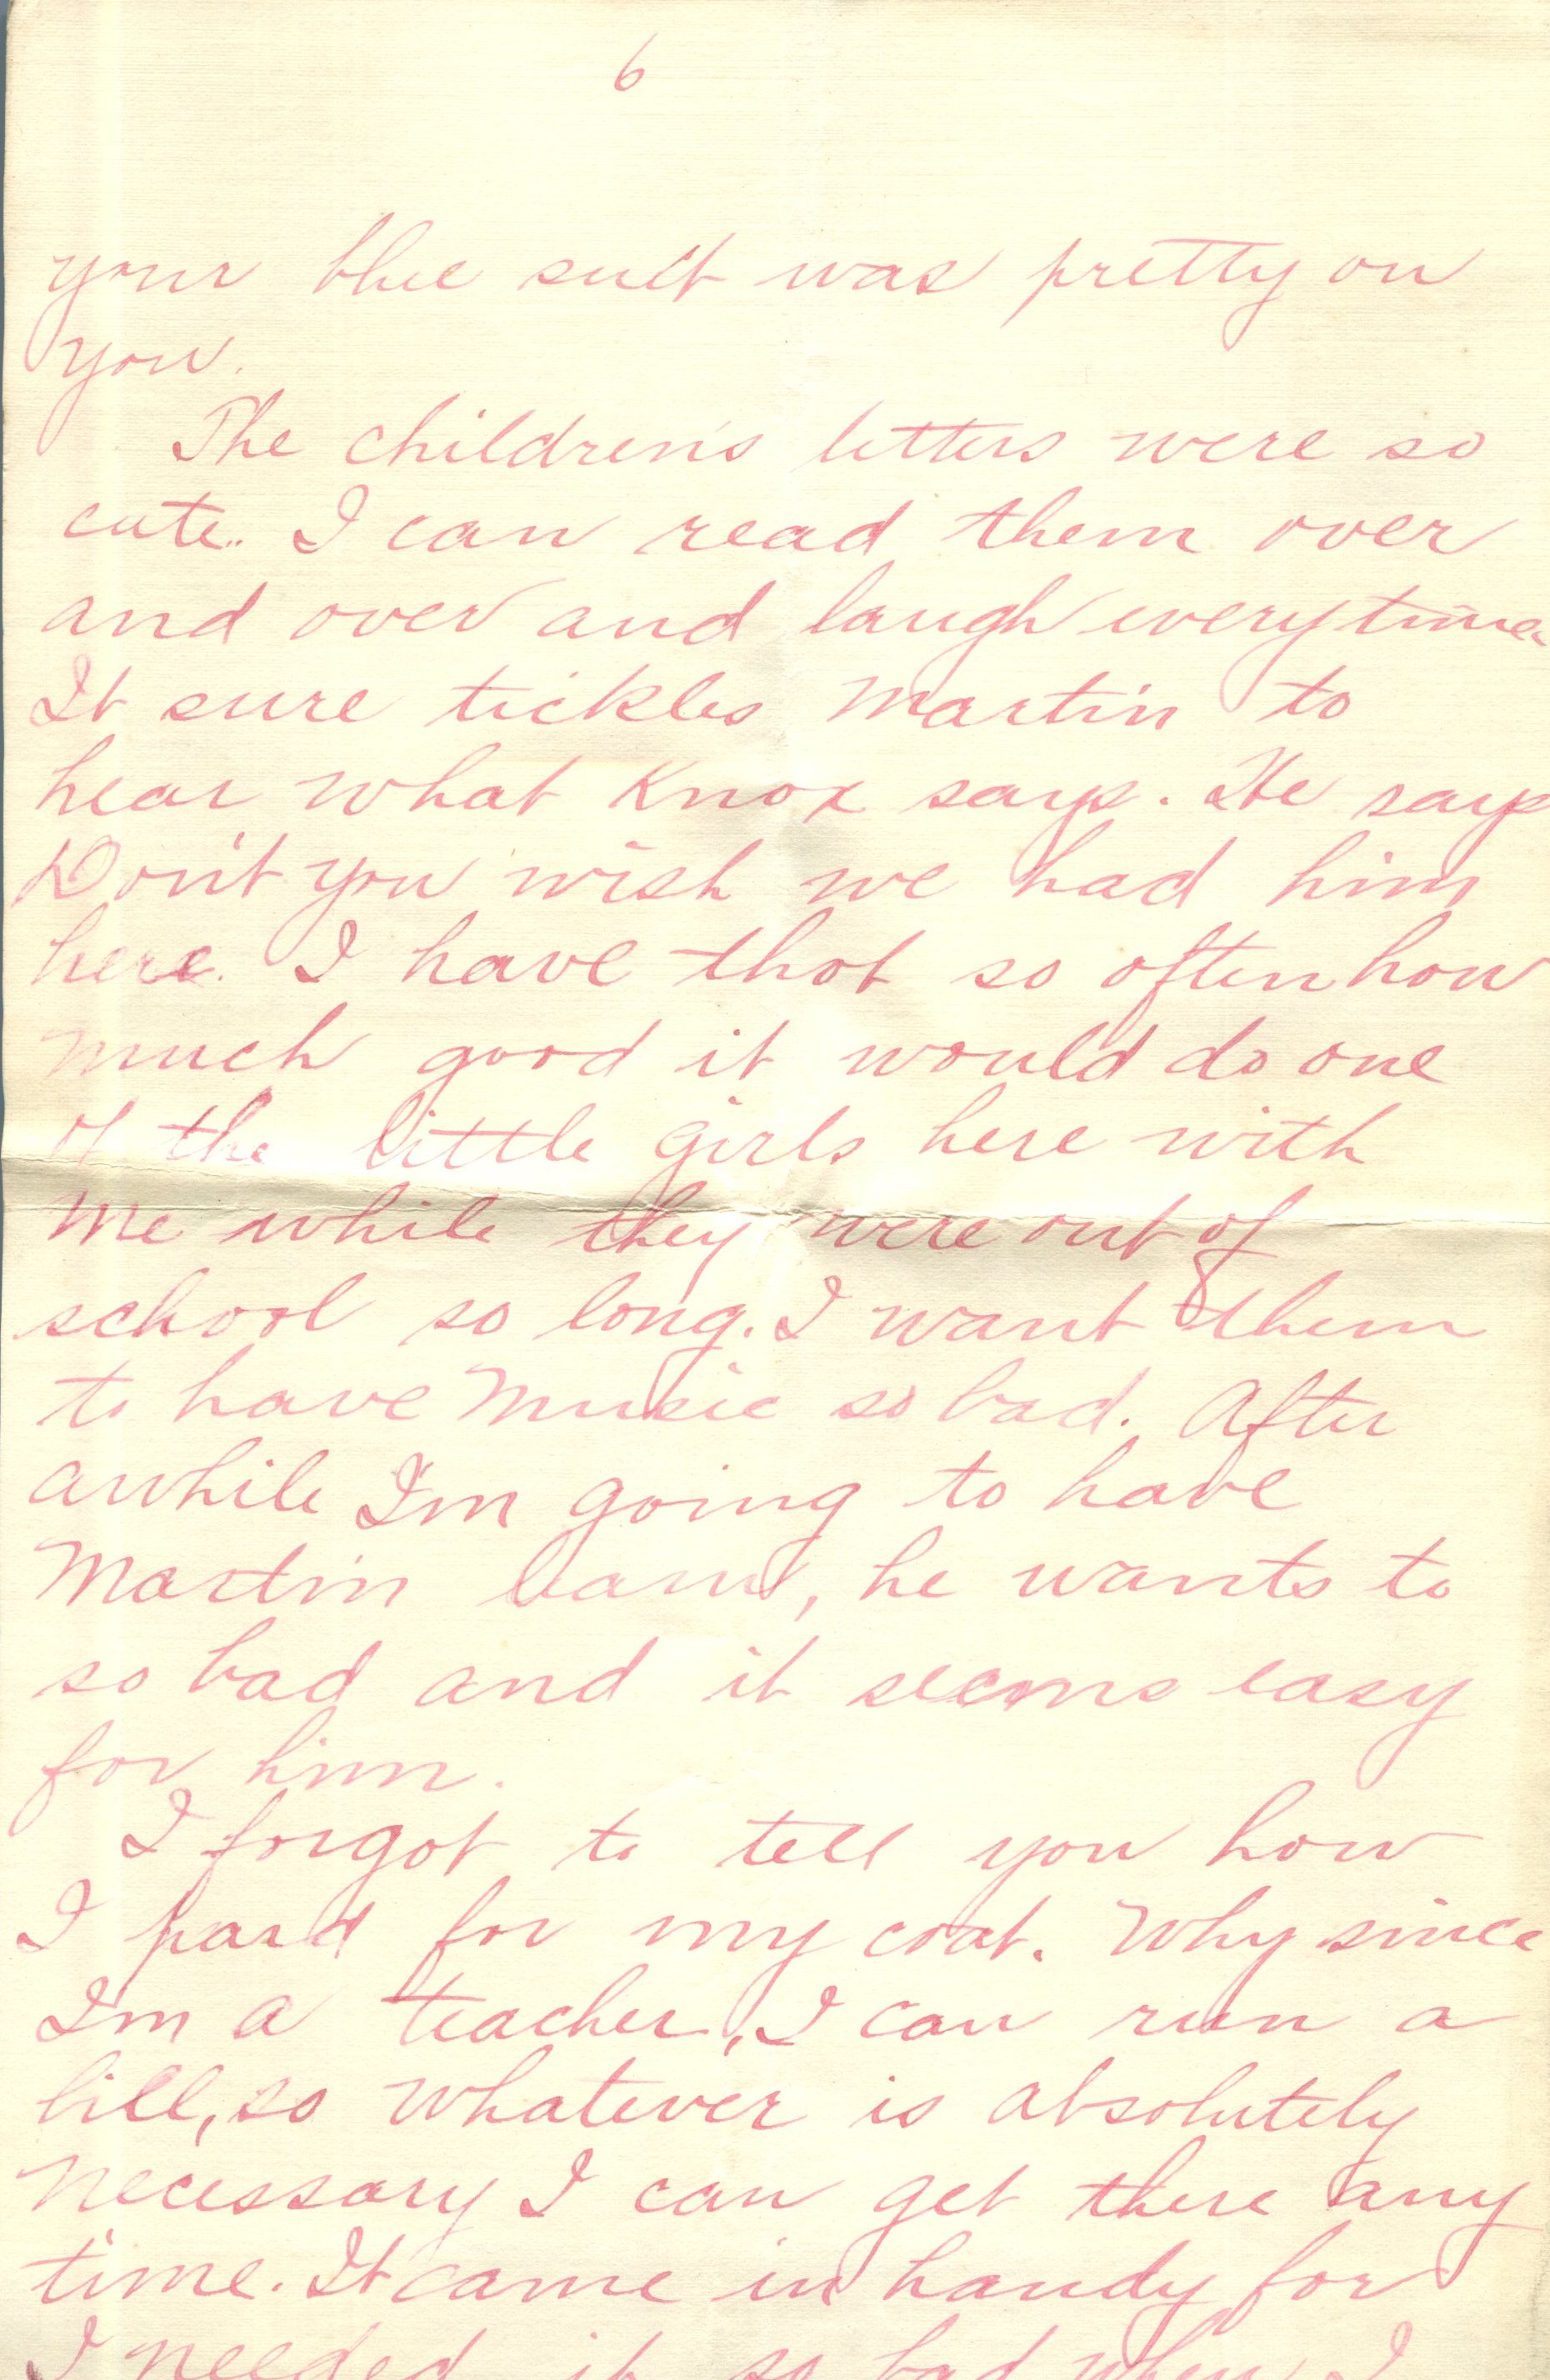 6
your blue suit was pretty on
you.
The children's letters were so
cute. I can read them over
and over and laugh everytime
It sure tickles Martin to
hear what Knox says. He says
Don't you wish we had him
here. I have thot so often how
much good it would do one
of the little girls here with
me while they were out of
school so long. I want them
to have music so bad. After
awhile I'm going to have
Martin learn, he wants to
so bad and it seems easy
for him.
I forgot to tell you how
I paid for my coat. Why since
I'm a teacher, I can run a
bill, so whatever is absolutely
necessary I can get there any
time. It came in handy for
I needed it so bad when I